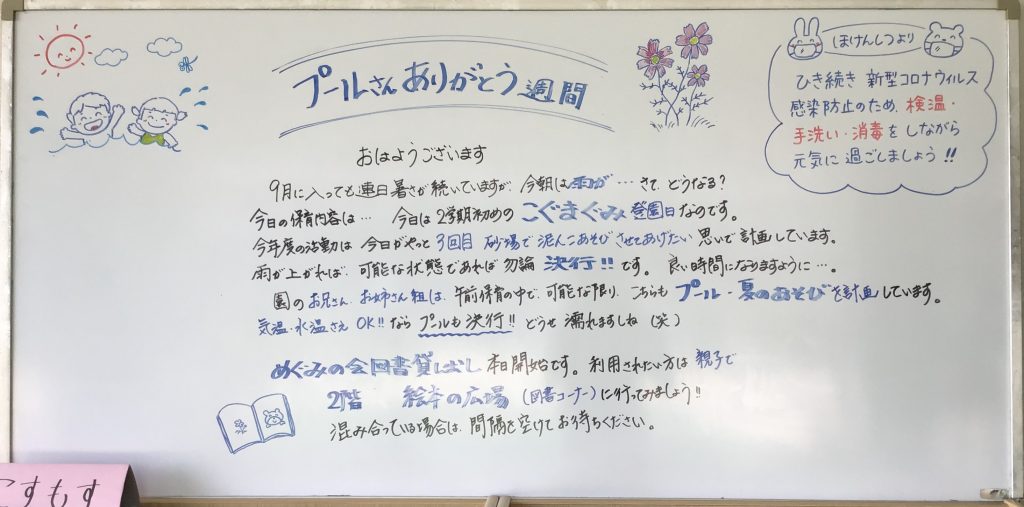 プールさんありがとう週間
ほけんしつより
ひき続き 新型コロナウィルス
感染防止のため、検温・
手洗い・消毒をしながら
元気に過ごしましょう!!
おはようございます
9月に入っても連日暑さが続いていますが、今朝は雨が…さて、どうなる?
今日の保育内容は… 今日は2学期初めのこぐまぐみ登園日なのです。
今年度の活動は今日がやっと3回目 砂場で泥んこあそびさせてあげたい思いで計画しています。
雨が上がれば、可能な状態であれば勿論 決行!!です。 良い時間になりますように…。
園のお兄さん、お姉さん組は、午前保育の中で、可能な限り、こちらもプール・夏のあそびを計画しています。
気温・水温さえOK!!ならプールも決行!! どうせ濡れますしね(笑)
めぐみの会図書貸し出し本日開始です。利用されたい方は親子で
2階 絵本の広場(図書コーナー)に行ってみましょう!!
混み合っている場合は、間隔を空けてお待ちください。
こすもす